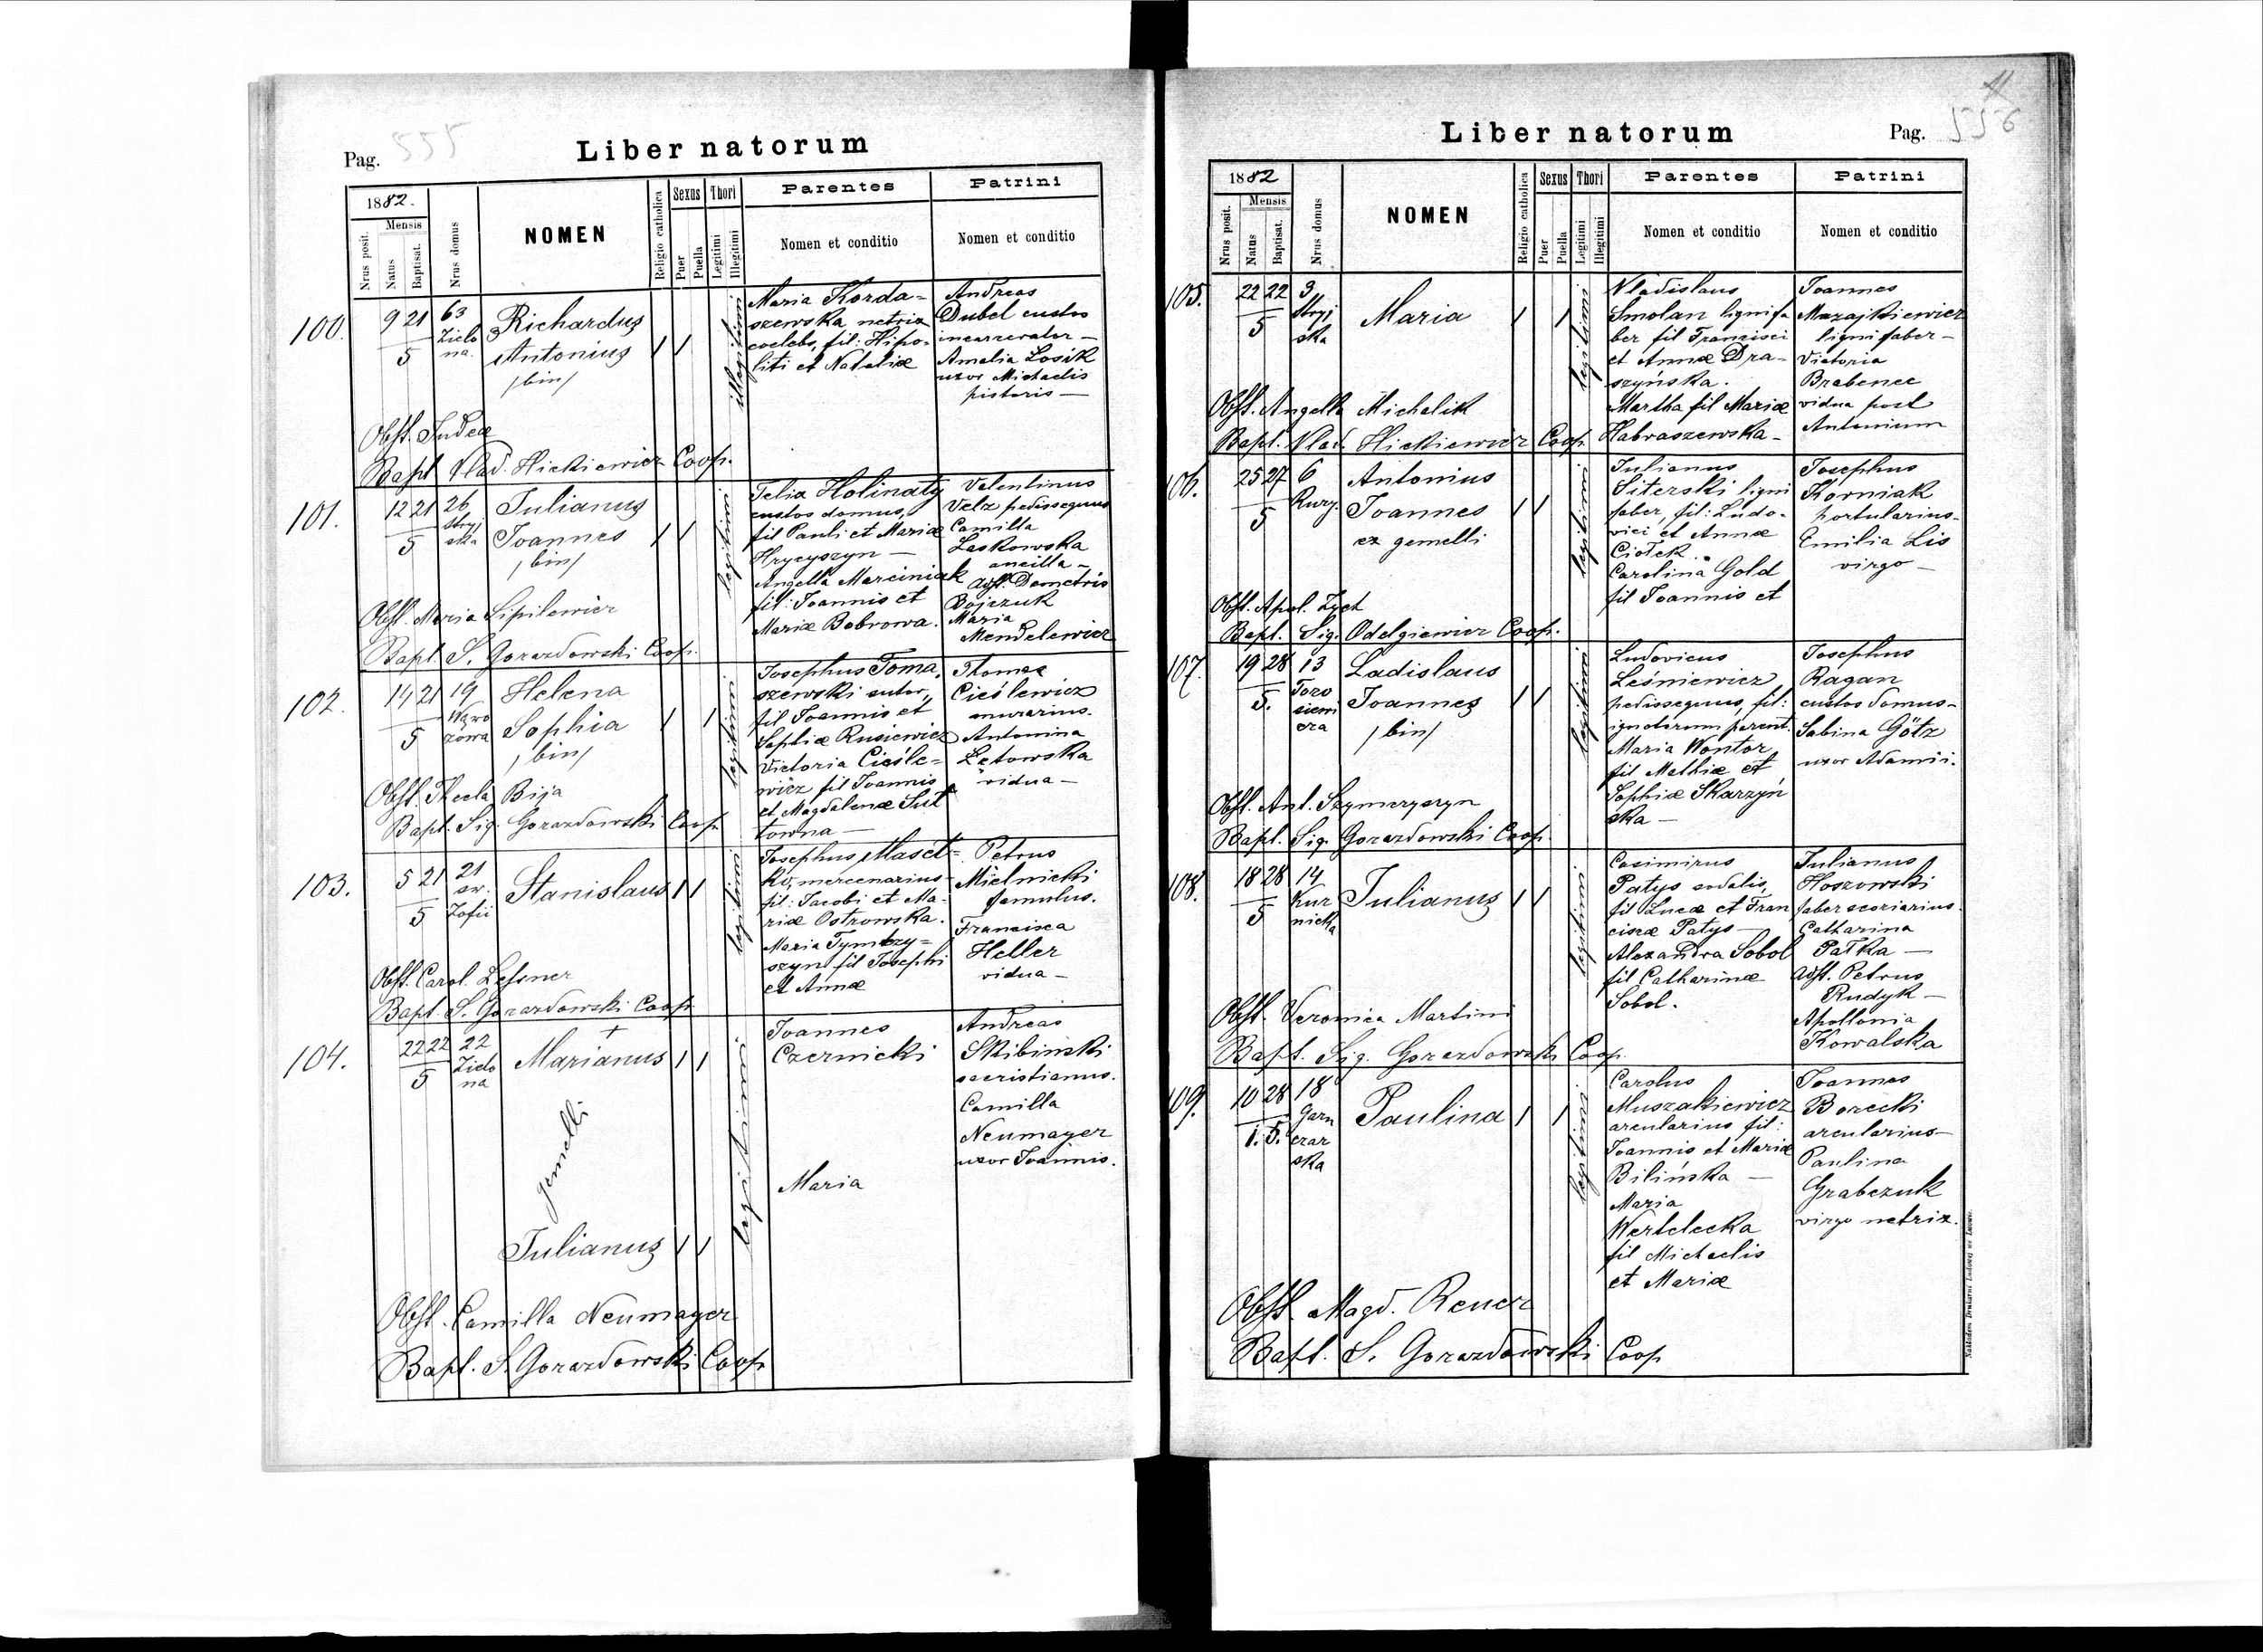 Pag. 555
Liber natorum
1882.
Nrus posit.
Mensis
Natus
Baptisat.
Nrus domus
NOMEN
Religio catholica
Sexus
Puer
Puella
Thori
Legitimi
Illegitimi
Parentes
Nomen et conditio
Patrini
Nomen et conditio
100.
9 21
5
63
Zielo
na.
Richardus
Antonius
/bin/
illegitimi
Maria Korda=
szewska netrix
coelebs, fil: Hipo=
liti et Nataliæ
Andreas
Dubel custos
incarcerator —
Amalia Losik
uxor Michaelis
pistoris —
Obst. Judea
Bapt. Vlad. Hickiewicz Coop.
101.
12 21
5
26
Stryj
ska
Julianus
Joannes
/bin/
legitimi
Felix Holinaty
custos domus,
fil Pauli et Mariæ
Hrycyszyn —
Angella Marciniak
fil: Joannis et
Mariæ Bobrowa.
Valentinus
Velz pedissequus
Camilla
Laskowska
ancilla —
Asst. Demetris
Bojczuk
Maria
Mendelewicz
Obst. Maria Lipilewicz
Bapt. S. Gorazdowski Coop.
102.
14 21
5
19
Helena
Sophia
/bin/
legitimi
Josephus Toma,
szewski sutor,
fil Joannis et
Sophiæ Rusiewicz
Victoria Cieśle=
wicz fil Joannis
et Magdalenæ Sut
towna —
Thomas
Cieślewicz
murarius.
Antonina
Letowska
vidua —
Obst. Thecla Bija
Bapt. Sig. Gorazdowski Coop.
103.
5 21
5
21
św.
Zofii
Stanislaus
legitimi
Josephus Masel=
ko, mercenarius
fil: Jacobi et Ma=
riæ Ostrowska.
Maria Tymczy=
szyn fil Josephi
et Annæ
Petrus
Mielnicki
famulus.
Francisca
Heller
vidua —
Obst. Carol. Lessner
Bapt. S. Gorazdowski Coop.
104.
22 22
5
22
Zielo
na
Marianus
gemelli
Julianus
legitimi
Joannes
Czernicki
Maria
Andreas
Skibiński
sacristianus.
Camilla
Neumayer
uxor Joannis.
Obst. Camilla Neumayer
Bapt. S. Gorazdowski Coop.
Liber natorum
Pag. 556
1882
Nrus posit.
Mensis
Natus
Baptisat.
Nrus domus
NOMEN
Religio catholica
Sexus
Puer
Puella
Thori
Legitimi
Illegitimi
Parentes
Nomen et conditio
Patrini
Nomen et conditio
105.
22 22
5
3
Stryj
ska
Maria
legitimi
Vladislaus
Smolan lignifa
ber fil Francisci
et Annæ Dra=
szyńska.
Martha fil Mariæ
Habraszewska —
Joannes
Mazajkiewicz
lignifaber —
Victoria
Brabenec
vidua post
Antonium
Obst. Angella Michalik
Bapt. Vlad. Hickiewicz Coop.
106.
25 27
5
6
Antonius
Joannes
ex gemelli
legitimi
Julianus
Siterski ligni
faber, fil: Ludo=
vici et Annæ
Ciołek.
Carolina Gold
fil Joannis et
Josephus
Korniak
portularius.
Emilia Lis
virgo —
Obst. Apol. Zych
Bapt. Sig. Odelgiewicz Coop.
107.
19 28
5.
13
Ladislaus
Joannes
/bin/
legitimi
Ludovicus
Leśniewicz
pedissequus, fil:
ignotorum parent.
Maria Wontor
fil Mathiæ et
Sophiæ Skarzyń
ska —
Josephus
Ragan
custos domus —
Sabina Götz
uxor Adamii.
Obst. Ant. Szymczyszyn
Bapt. Sig. Gorazdowski Coop.
108.
18 28
5
14
Kur
nicka
Julianus
legitimi
Casimirus
Patys sodalis,
fil Lucæ et Fran
ciscæ Patys —
Alexandra Sobol
fil Catharinæ
Sobol.
Julianus
Hoszowski
faber scoriarius.
Catharina
Pałka —
Asst. Petrus
Rudyk —
Apollonia
Kowalska
Obst. Veronica Martini
Bapt. Sig. Gorazdowski Coop.
109.
10 28
1. 5.
18
Garn
czar
ska
Paulina
legitimi
Carolus
Muszakiewicz
arcularius fil:
Joannis et Mariæ
Bilińska —
Maria
Wertelecka
fil Michaelis
et Mariæ
Joannes
Borecki
arcularius —
Paulina
Grabczuk
virgo netrix.
Obst. Magd. Rener
Bapt. S. Gorazdowski Coop
Nakładem Drukarni Ludowej we Lwowie.